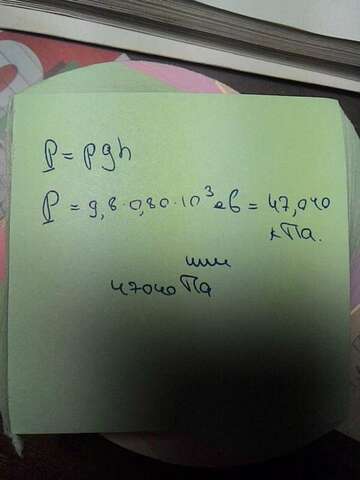 P = ρgh
P = 9,8·0,80·10³ = 47,040
кПа.
или
47040 Па